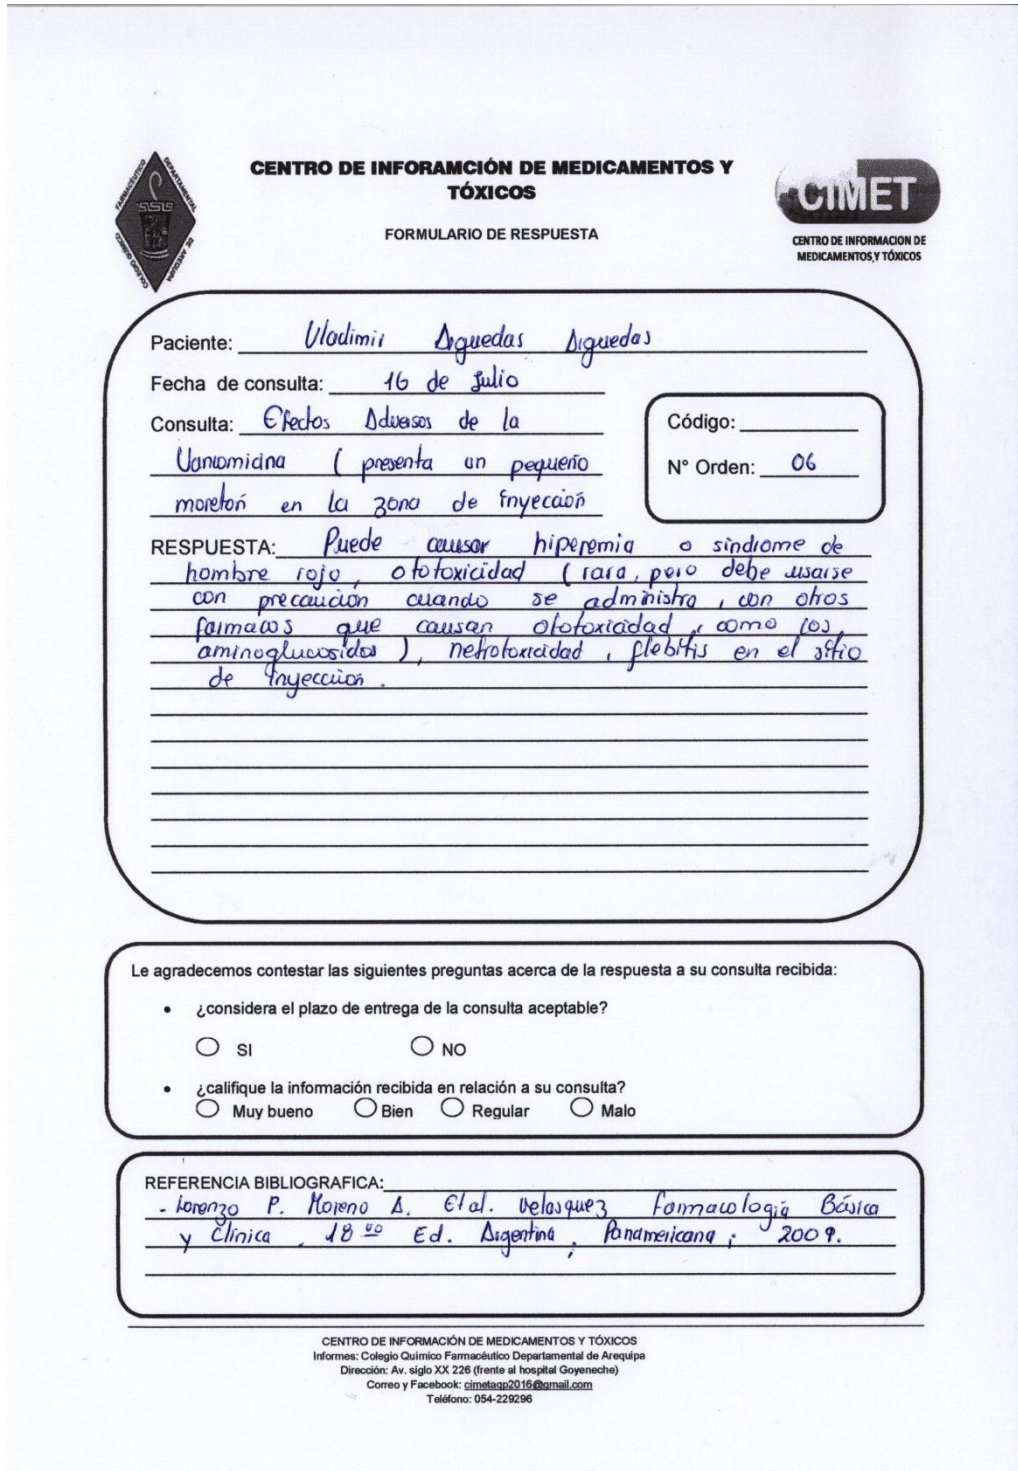 CENTRO DE INFORAMCIÓN DE MEDICAMENTOS Y
TÓXICOS
FORMULARIO DE RESPUESTA
COLEGIO QUÍMICO FARMACÉUTICO DEPARTAMENTAL DE AREQUIPA
CIMET
CENTRO DE INFORMACION DE
MEDICAMENTOS Y TÓXICOS
Paciente: Vladimir Arguedas Arguedas
Fecha de consulta: 16 de Julio
Consulta: Efectos Adversos de la
Vancomicina ( presenta un pequeño
moretoń en la zona de inyeccioń
Código:
N° Orden: 06
RESPUESTA: Puede causar hiperemia o sindrome de
hombre rojo, ototoxicidad (rara, pero debe usarse
con precaución cuando se administra, con otros
farmacos que causan ototoxicidad, como los
aminoglucosidos ), nefrotoxicidad, flebitis en el sitio
de inyección.
Le agradecemos contestar las siguientes preguntas acerca de la respuesta a su consulta recibida:
• ¿considera el plazo de entrega de la consulta aceptable?
SI NO
• ¿califique la información recibida en relación a su consulta?
Muy bueno Bien Regular Malo
REFERENCIA BIBLIOGRAFICA:
- Lorenzo P. Moreno A. Et al. Velasquez Farmacologia Básica
y Clínica. 18 va Ed. Argentina; Panamericana; 2009.
CENTRO DE INFORMACIÓN DE MEDICAMENTOS Y TÓXICOS
Informes: Colegio Químico Farmacéutico Departamental de Arequipa
Dirección: Av. siglo XX 226 (frente al hospital Goyeneche)
Correo y Facebook: cimetaqp2016@gmail.com
Teléfono: 054-229296